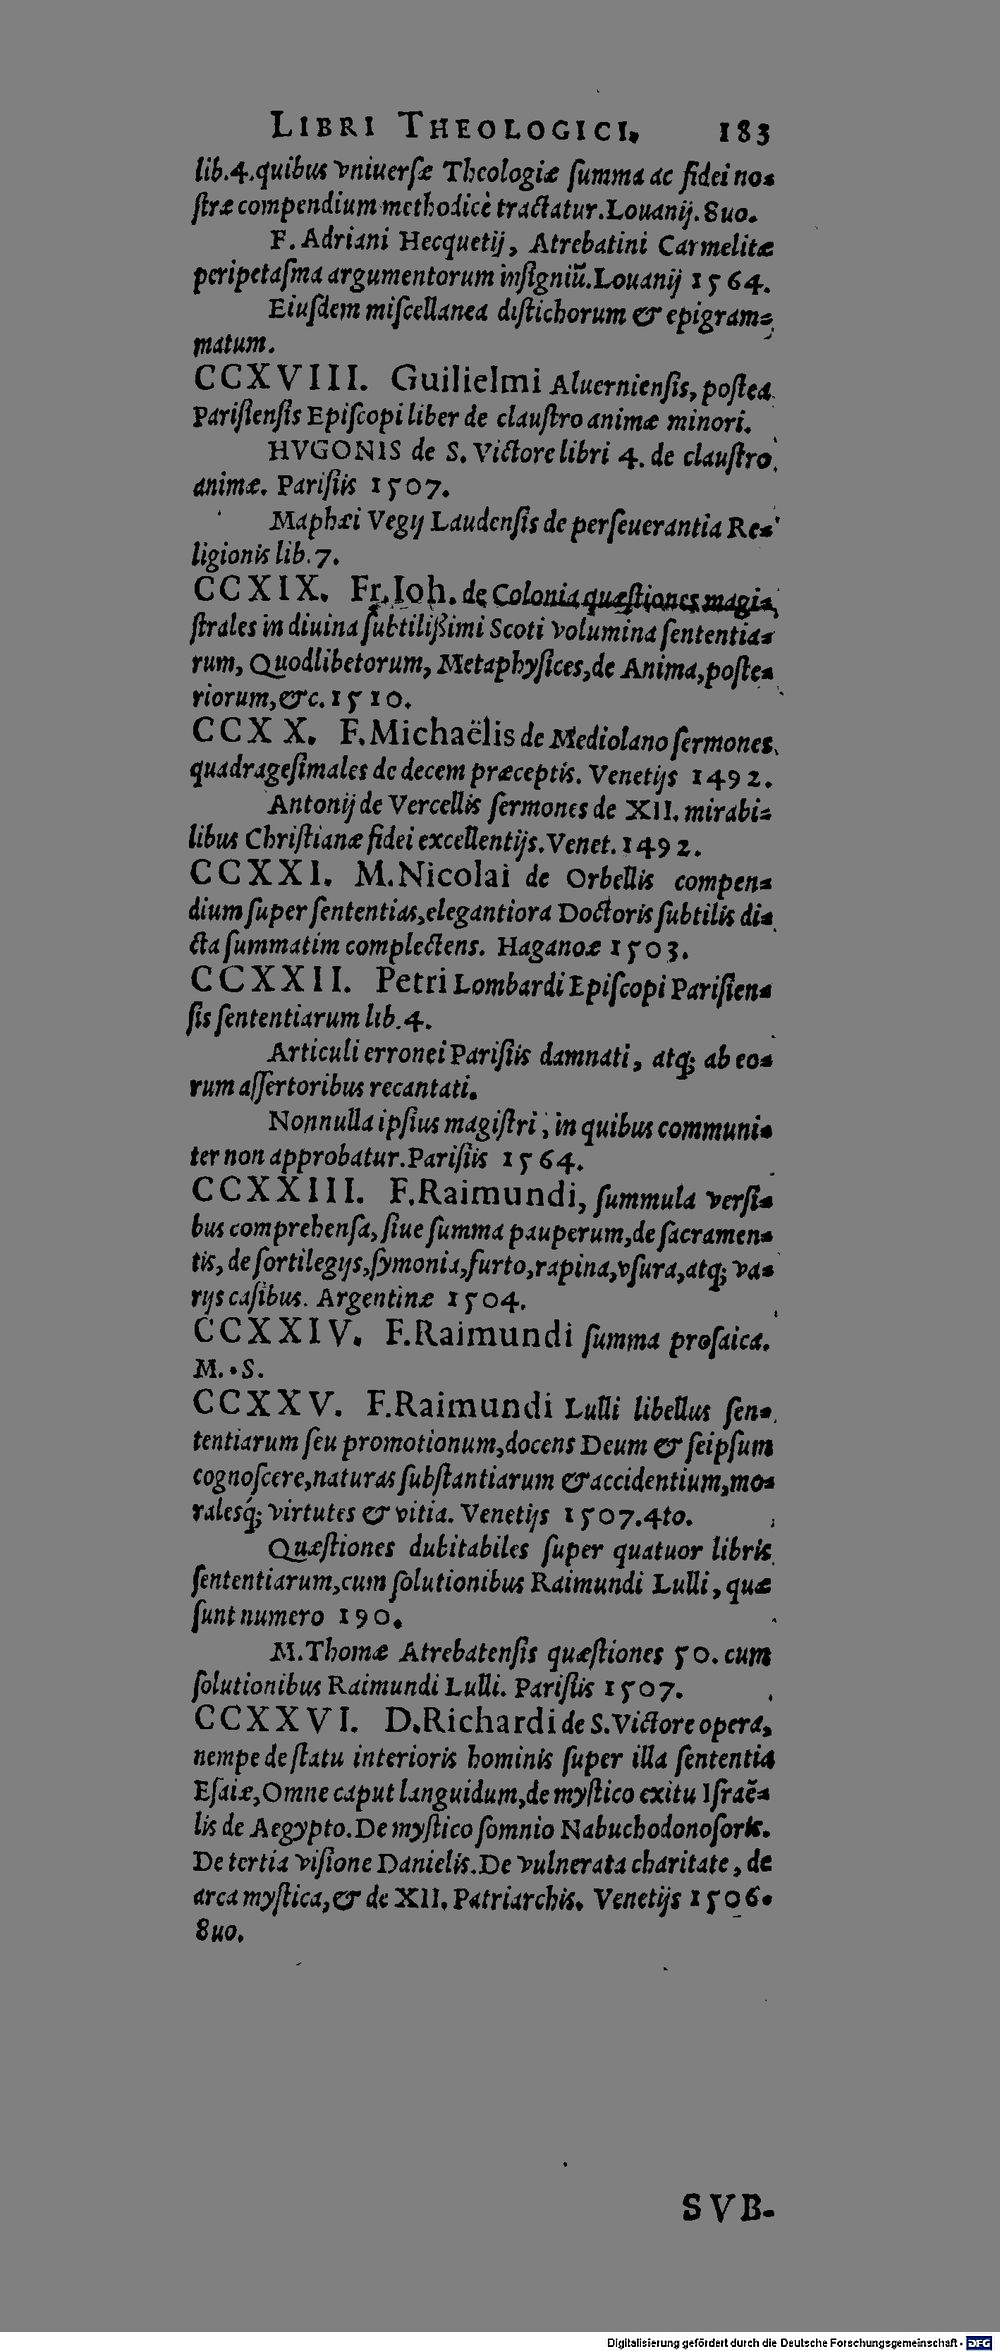 LIBRI THEOLOGICI. 183
lib.4.quibus vniuersæ Theologiæ summa ac fidei no=
stræ compendium methodicè tractatur.Louanij.8uo.
F. Adriani Hecquetij, Atrebatini Carmelitæ
peripetasma argumentorum insigniũ.Louanij 1564.
Eiusdem miscellanea distichorum & epigram=
matum.
CCXVIII. Guilielmi Aluerniensis, postea
Parisiensis Episcopi liber de claustro animæ minori.
HVGONIS de S. Victore libri 4. de claustro
animæ. Parisiis 1507.
Maphæi Vegij Laudensis de perseuerantia Re=
ligionis lib.7.
CCXIX. Fr.Ioh. de Colonia quæstiones magi=
strales in diuina subtilißimi Scoti volumina sententia=
rum, Quodlibetorum, Metaphysices,de Anima,poste=
riorum,&c.1510.
CCXX. F.Michaëlis de Mediolano sermones
quadragesimales de decem præceptis. Venetijs 1492.
Antonij de Vercellis sermones de XII. mirabi=
libus Christianæ fidei excellentijs.Venet.1492.
CCXXI. M.Nicolai de Orbellis compen=
dium super sententias,elegantiora Doctoris subtilis di=
cta summatim complectens. Haganoæ 1503.
CCXXII. Petri Lombardi Episcopi Parisien=
sis sententiarum lib.4.
Articuli erronei Parisiis damnati, atq; ab eo=
rum assertoribus recantati.
Nonnulla ipsius magistri, in quibus communi=
ter non approbatur.Parisiis 1564.
CCXXIII. F.Raimundi, summula versi=
bus comprehensa, siue summa pauperum,de sacramen=
tis, de sortilegijs,symonia,furto,rapina,vsura,atq; va=
rijs casibus. Argentinæ 1504.
CCXXIV. F.Raimundi summa prosaica.
M.S.
CCXXV. F.Raimundi Lulli libellus sen=
tentiarum seu promotionum,docens Deum & seipsum
cognoscere,naturas substantiarum & accidentium,mo=
ralesq́; virtutes & vitia. Venetijs 1507.4to.
Quæstiones dubitabiles super quatuor libris
sententiarum,cum solutionibus Raimundi Lulli, quæ
sunt numero 190.
M.Thomæ Atrebatensis quæstiones 50. cum
solutionibus Raimundi Lulli. Parisiis 1507.
CCXXVI. D.Richardi de S.Victore opera,
nempe de statu interioris hominis super illa sententia
Esaiæ,Omne caput languidum,de mystico exitu Israẽ=
lis de Aegypto.De mystico somnio Nabuchodonosoris.
De tertia visione Danielis.De vulnerata charitate, de
arca mystica,& de XII. Patriarchis. Venetijs 1506.
8uo.
SVB-
Digitalisierung gefördert durch die Deutsche Forschungsgemeinschaft - DFG